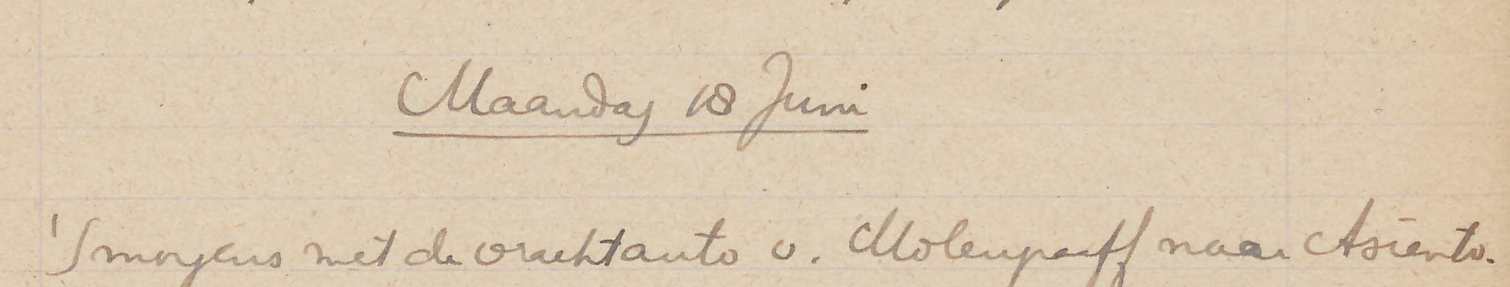 Maandag 18 Juni
's morgens met de vrachtauto v. Molengraaff naar Asiento.